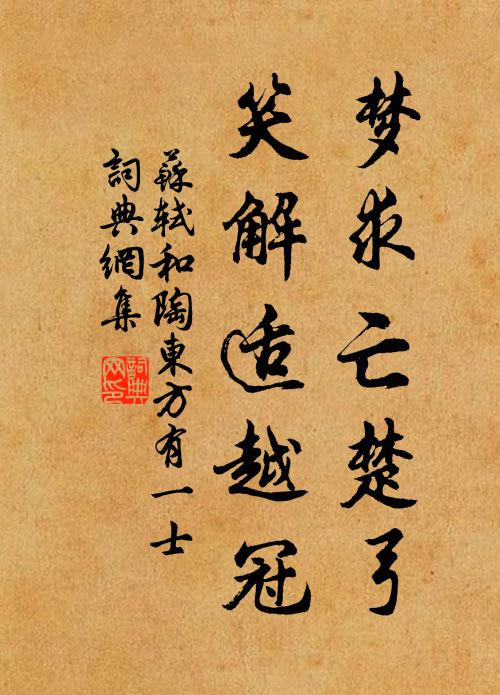 梦求亡楚弓
笑解适越冠
蘇軾和陶東方有一士
詞典網集
詞典网印